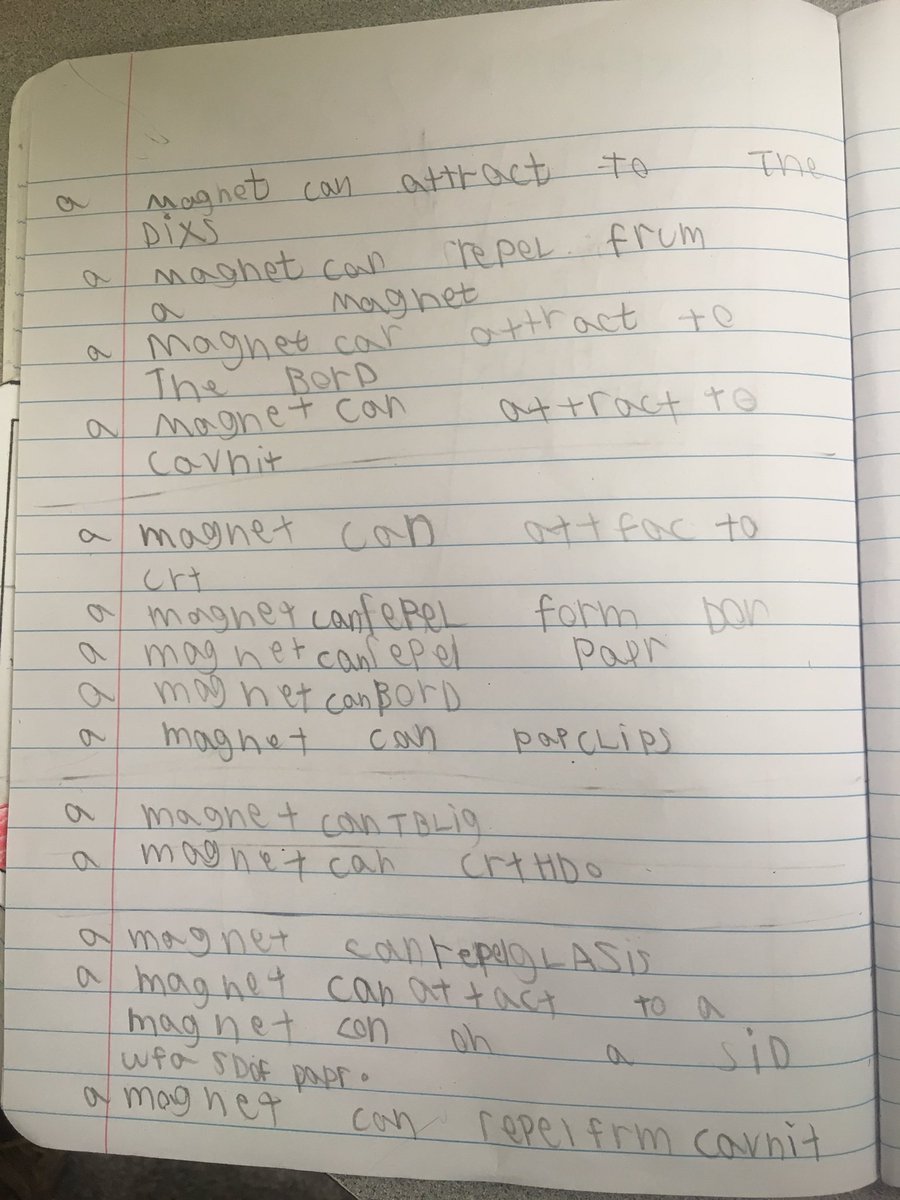 a magnet can attract to The
Dixs
a magnet can repel frum
a magnet
a magnet car attract to
The BorD
a magnet can attract to
cavnit
a magnet can attrac to
crt
a magnet can repel form Dor
a magnet can repel papr
a magnet can BorD
a magnet can papcLips
a magnet can TBLig
a magnet can crtHDo
a magnet can repelgLASis
a magnet can attact to a
magnet con oh a SiD
wfa SDof papr.
a magnet can repel frm cavnit